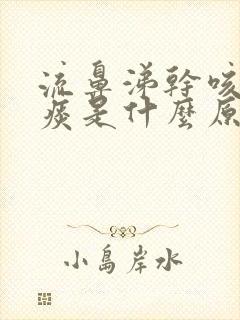 流鼻涕幹咳
痰是什麼原
小島岸水